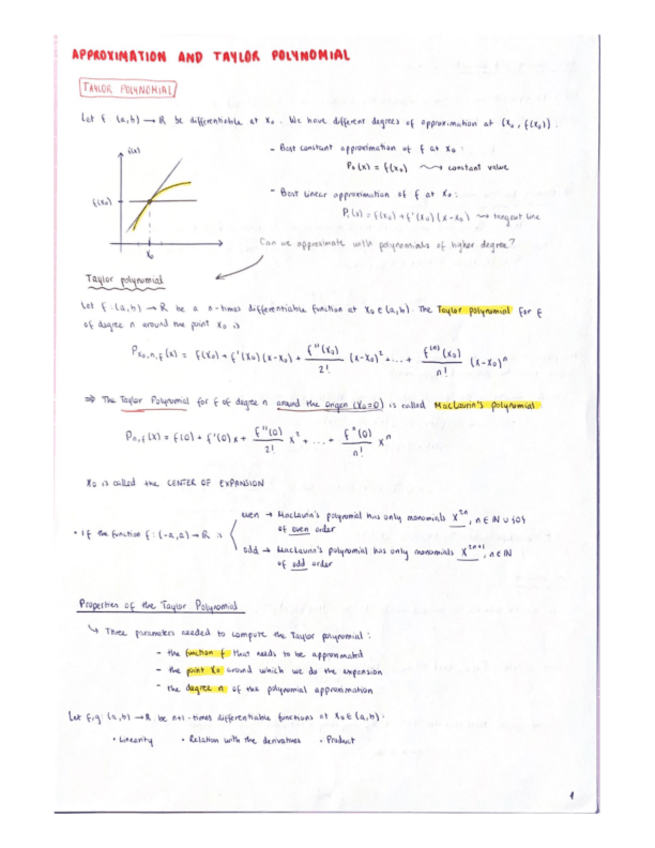 APPROXIMATION AND TAYLOR POLYNOMIAL
TAYLOR POLYNOMIAL
Let f: (a,b) → R be differentiable at x₀. We have different degrees of approximation at (x₀, f(x₀)):
f(x)
f(x₀)
x₀
- Best constant approximation of f at x₀:
P₀(x) = f(x₀) ⇝ constant value
- Best linear approximation of f at x₀:
P₁(x) = f(x₀) + f'(x₀)(x-x₀) ⇝ tangent line
Can we approximate with polynomials of higher degree?
Taylor polynomial
Let f: (a,b) → R be a n-times differentiable function at x₀ ∈ (a,b). The Taylor polynomial for f
of degree n around the point x₀ is
P_{x₀,n,f}(x) = f(x₀) + f'(x₀)(x-x₀) + f''(x₀)/2! (x-x₀)² + ... + f⁽ⁿ⁾(x₀)/n! (x-x₀)ⁿ
⇒ The Taylor Polynomial for f of degree n around the origen (x₀=0) is called MacLaurin's polynomial
P_{n,f}(x) = f(0) + f'(0)x + f''(0)/2! x² + ... + fⁿ(0)/n! xⁿ
x₀ is called the CENTER OF EXPANSION
• If the function f: (-a,a) → R is
even → MacLaurin's polynomial has only monomials x²ⁿ, n ∈ N ∪ {0}
of even order
odd → MacLaurin's polynomial has only monomials x²ⁿ⁺¹, n ∈ N
of odd order
Properties of the Taylor Polynomial
↳ Three parameters needed to compute the Taylor polynomial:
- the function f that needs to be approximated
- the point x₀ around which we do the expansion
- the degree n of the polynomial approximation
Let f,g: (a,b) → R be n+1-times differentiable functions at x₀ ∈ (a,b).
• Linearity • Relation with the derivatives • Product
1